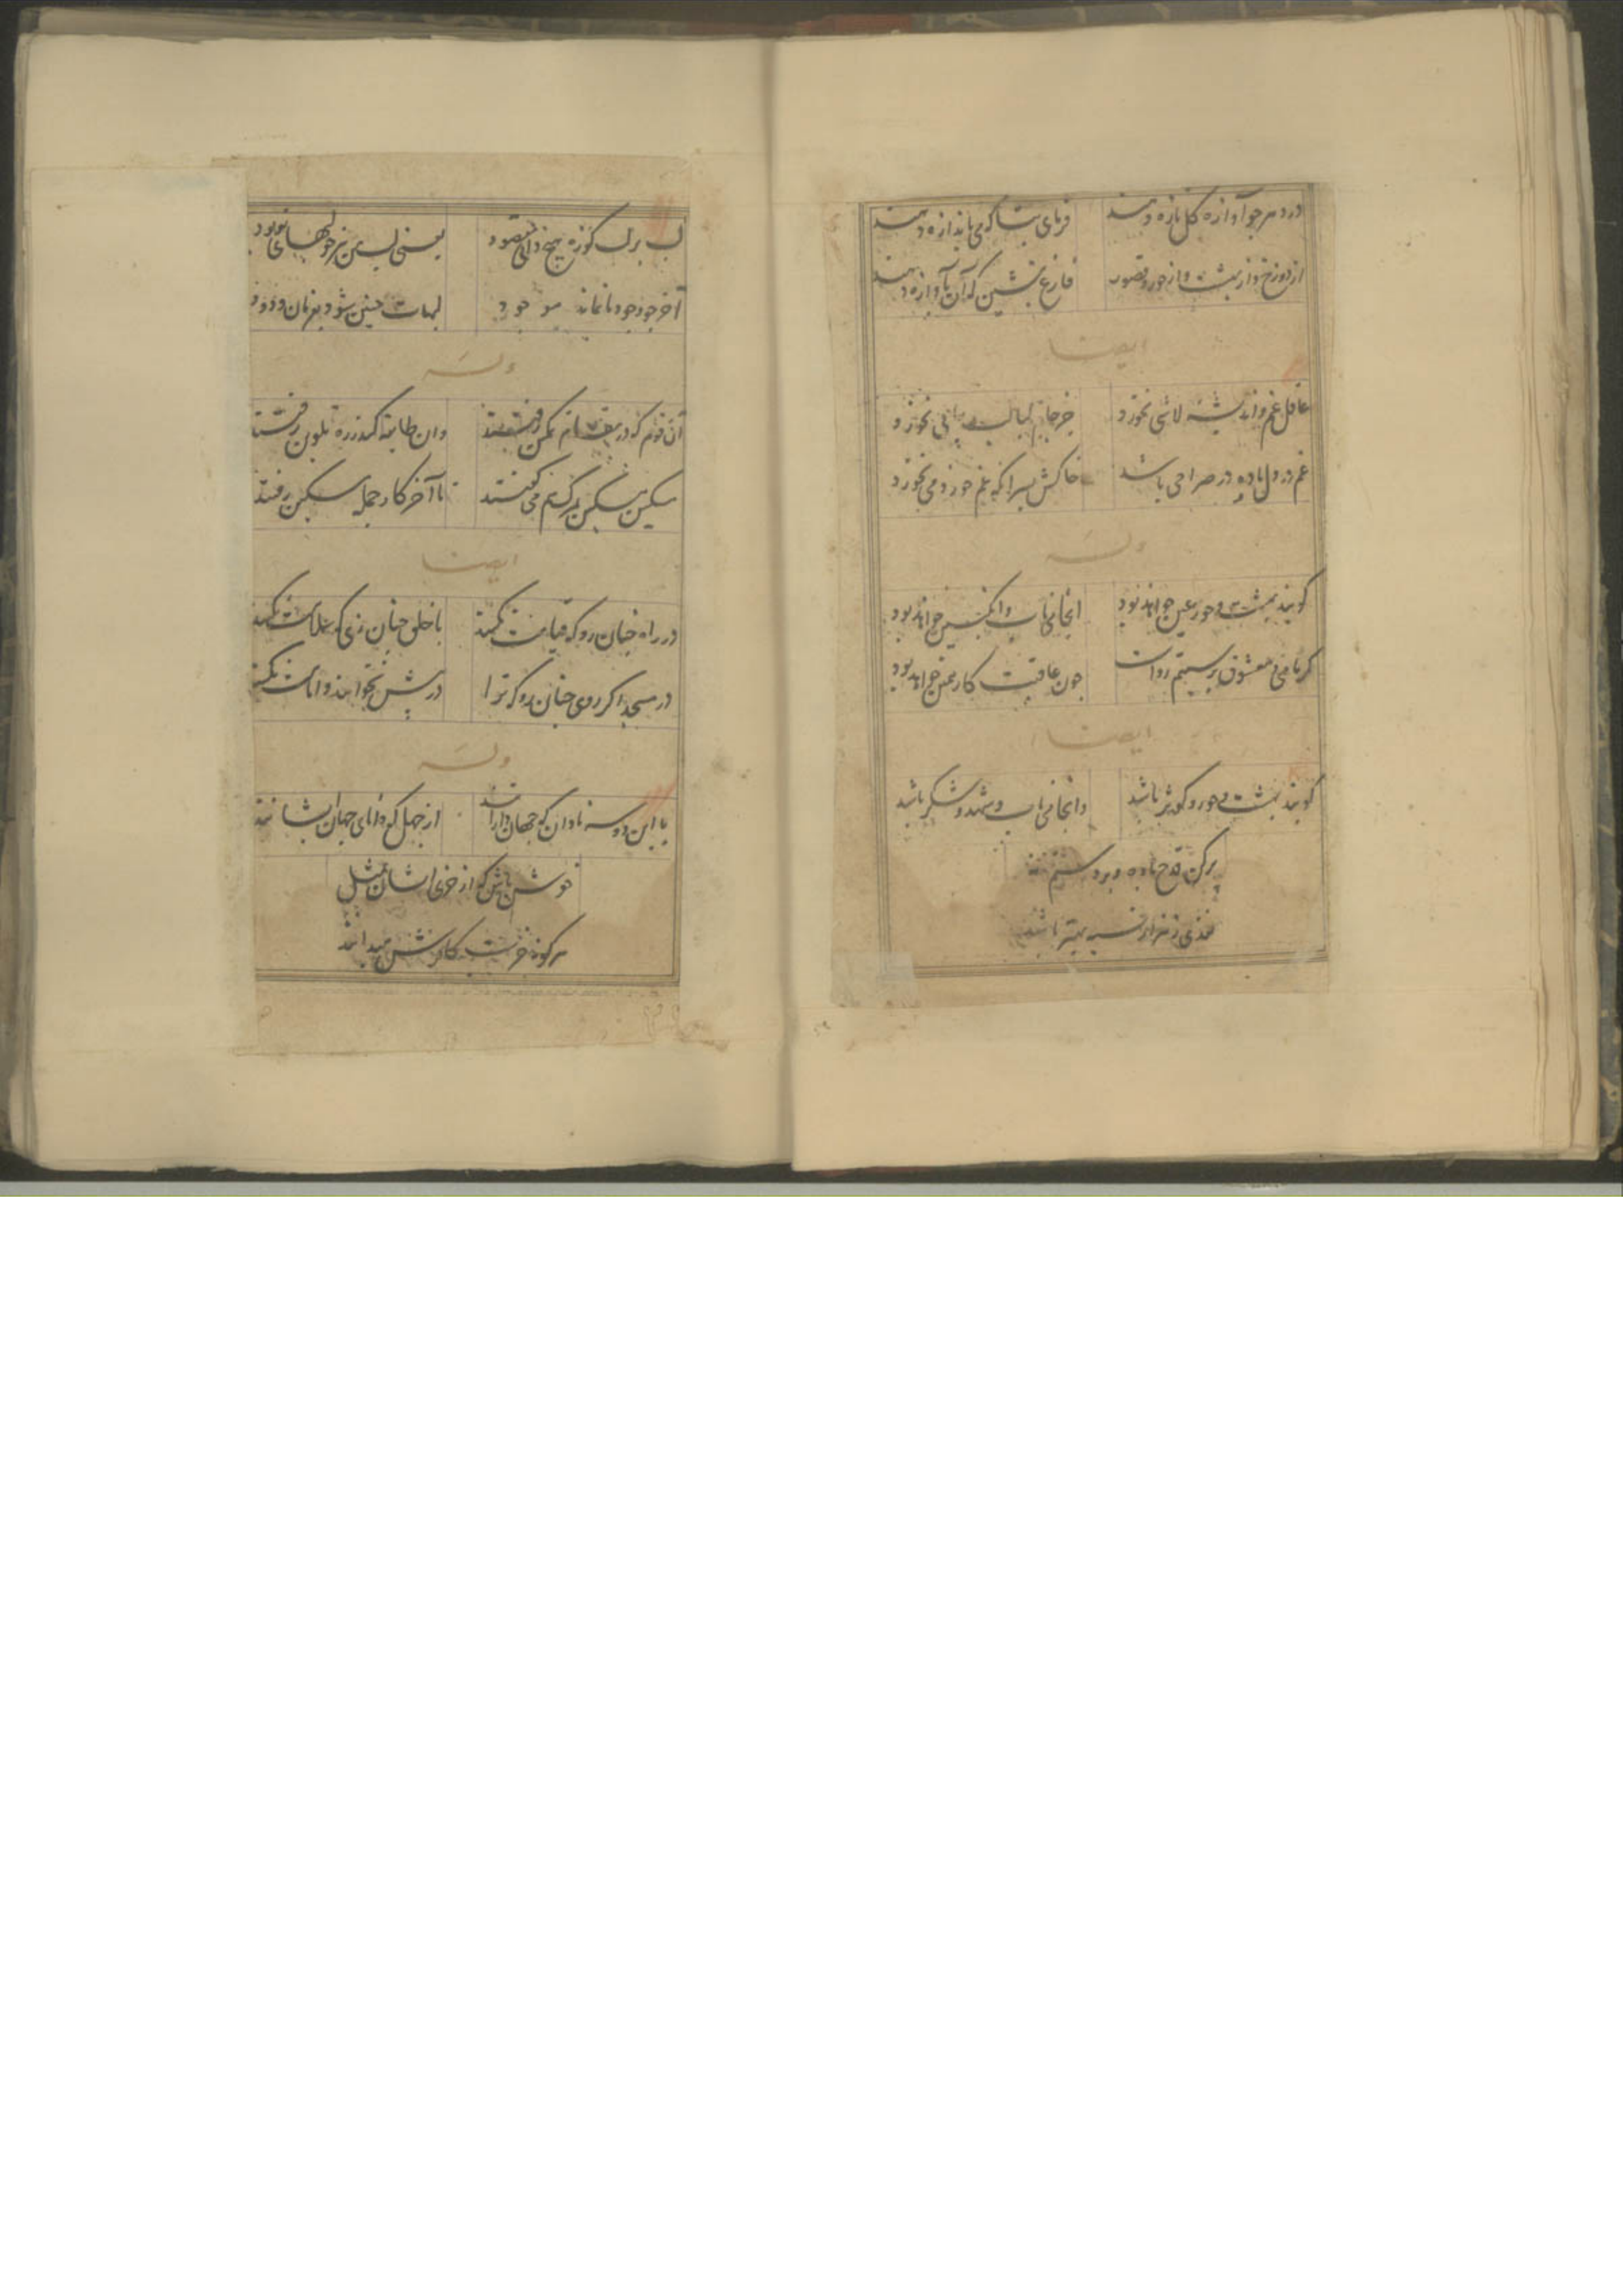 در دهر چو آوازه گل تازه دهند فرمای بتا که می باندازه دهند
از دوزخ و از بهشت و از حور و قصور فارغ بنشین که آن بآوازه دهند
ایضا
عاقل غم و اندیشه لاشی نخورد جز جام لبالب پیاپی نخورد
غم در دل و باده در صراحی باشد خاکش بسر انکه غم خورد و می نخورد
وله
کویند بهشت و حور عین خواهد بود انجا می ناب و انکبین خواهد بود
کر ما می و معشوق پرستیم رواست چون عاقبت کار همین خواهد بود
ایضا
کویند بهشت و حور و کوثر باشد وانجا می ناب و شهد و شکر باشد
پر کن قدح باده و بر دستم نه
نقدی ز هزار نسیه بهتر باشد
لب بر لب کوزه هیچ دانی مقصود یعنی لب من نیز چو لبهای تو بود
آخر چو وجود ما نماند موجود لبهات چنین شود بفرمان ودود
وله
آن قوم که در مقام تمکین رفتند وان طایفه کندر ره تلوین رفتند
مسکین مسکین برکسم می کفتند تا آخر کار جمله مسکین رفتند
ایضا
در راه چنان رو که قیامت نکنند با خلق چنان زی که سلامت نکنند
در مسجد اکر روی چنان رو که ترا در پیش نخوانند و امامت نکنند
وله
با این دو سه نادان که جهان دارانند از جهل که دانای جهان ایشانند
خوش باش که از خری ایشان بمثل
هر کو نه خرست کافرش میدانند